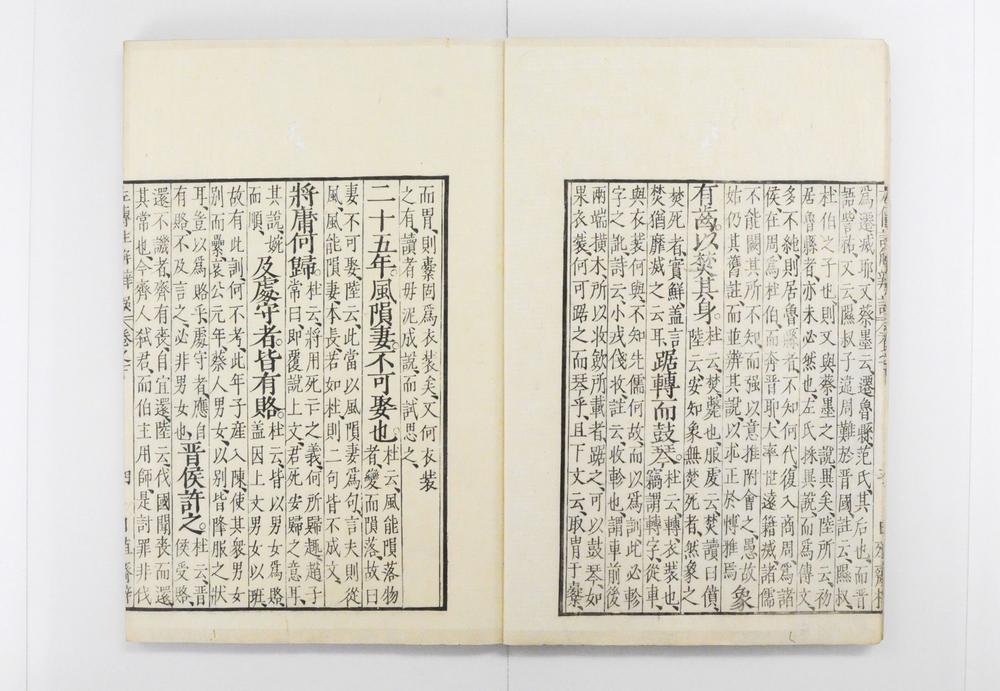 爲遷滅耶、又蔡墨云、遷魯縣、范氏、其后也、而晉
語訾祏、又云、隰叔子違周難於晉國、註云、隰叔、
杜伯之子也、則又與蔡墨之說、異矣、陸所云、初
居魯縣者、亦未必然也、左氏、採異說、而爲傳文、
多不純、則居魯縣者、不知何代、復入商周、爲諸
侯、在周、爲杜伯、而奔晉耶、大率世遠籍滅、諸儒
不能闕其所不知、而強以意推附會之、愚、故
姑仍其舊註、而並辨其說、以求正於博雅焉 象
有齒、以焚其身。杜云、焚、斃也、服虔云、焚讀曰僨、
陸云、安如象無焚死者、然象之
焚死者、實鮮、蓋言
焚猶靡滅之云耳、踞轉而鼓琴。杜云、轉、衣裝也、
竊謂轉字從車、
與衣裝何與、不知先儒何故、而以爲訓、此必軫
字之訛、詩云、小戎俴收、註云、收、軫也、謂車前後
兩端橫木、所以收斂所載者、踞之、可以鼓琴、如
果衣裝、何可踞之而琴乎、且下文云、取冑于櫜、
而冑、則櫜固爲衣裝矣、又何衣裝
之有、讀者毋泥成說、而試思之、
二十五年。風隕妻。不可娶也。杜云、風能隕落物
者、變而隕落、故曰
妻不可娶、陸云、此當以風隕妻爲句、言夫則從
風、風能隕妻、本長、若如杜、則二句皆不成文、
將庸何歸。杜云、將用死亡之義、何所歸趣、趙子
常曰、即覆說上文、君死安歸之意耳、
其說婉
而順、及處守者。皆有賂。杜云、皆以男女爲賂、
蓋因上文男女以班、
故有此訓、何不考、此年子產入陳、使其衆男女
別而纍、哀公元年、蔡人男女以別、皆降服之狀
耳、豈以爲賂乎、處守者、應自
有賂、不及言之、必非男女也、晉侯許之。杜云、晉
侯受賂、
還不譏者、齊有喪、自宜還、陸云、伐國聞喪而還、
其常也、今齊人弒君、而伯主用師、是討罪非伐